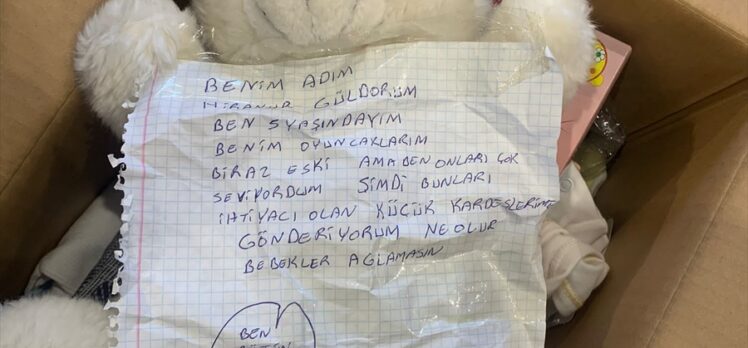 BENİM ADIM
HİRANUR GÜLDORUM
BEN 5 YAŞINDAYIM
BENİM OYUNCAKLARIM
BİRAZ ESKİ AMA BEN ONLARI ÇOK
SEVİYORDUM ŞİMDİ BUNLARI
İHTİYACI OLAN KÜÇÜK KARDEŞLERİME
GÖNDERİYORUM NE OLUR
BEBEKLER AĞLAMASIN
BEN